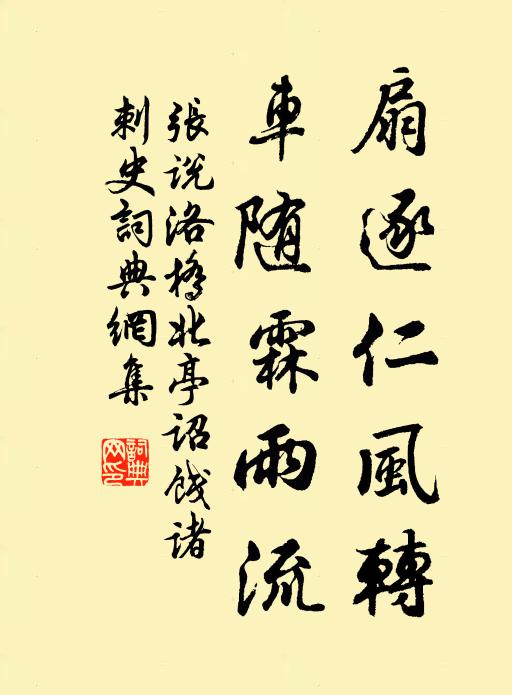 扇逐仁風轉
車隨霖雨流
張說洛橋北亭詔餞諸
刺史詞典網集
詞典網印